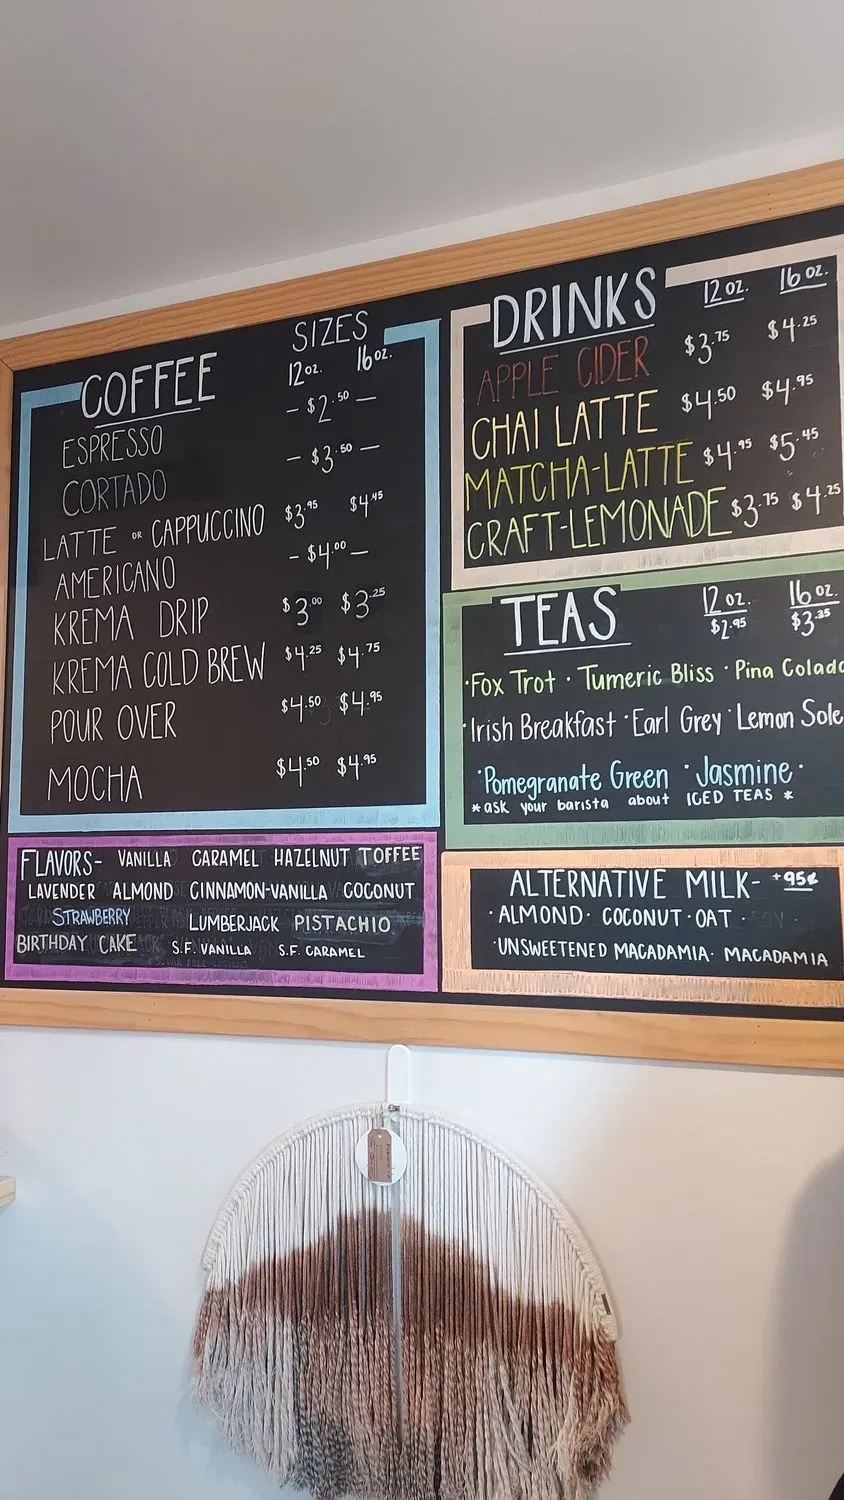 COFFEE
SIZES
12oz. 16oz.
ESPRESSO - $2.50 -
CORTADO - $3.50 -
LATTE OR CAPPUCCINO $3.95 $4.45
AMERICANO - $4.00 -
KREMA DRIP $3.00 $3.25
KREMA COLD BREW $4.25 $4.75
POUR OVER $4.50 $4.95
MOCHA $4.50 $4.95
FLAVORS- VANILLA CARAMEL HAZELNUT TOFFEE
LAVENDER ALMOND CINNAMON-VANILLA COCONUT
STRAWBERRY LUMBERJACK PISTACHIO
BIRTHDAY CAKE S.F. VANILLA S.F. CARAMEL
DRINKS 12oz. 16oz.
APPLE CIDER $3.75 $4.25
CHAI LATTE $4.50 $4.95
MATCHA-LATTE $4.95 $5.45
CRAFT-LEMONADE $3.75 $4.25
TEAS 12oz. 16oz.
$2.95 $3.25
·Fox Trot · Tumeric Bliss · Pina Colada
·Irish Breakfast ·Earl Grey ·Lemon Sole
·Pomegranate Green ·Jasmine·
*ask your barista about ICED TEAS *
ALTERNATIVE MILK- +95¢
·ALMOND· COCONUT·OAT
·UNSWEETENED MACADAMIA· MACADAMIA